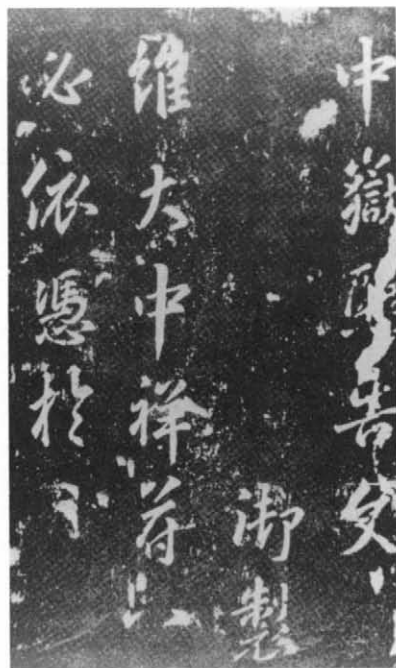 中嶽醮告文
御製
維大中祥符
必依憑於